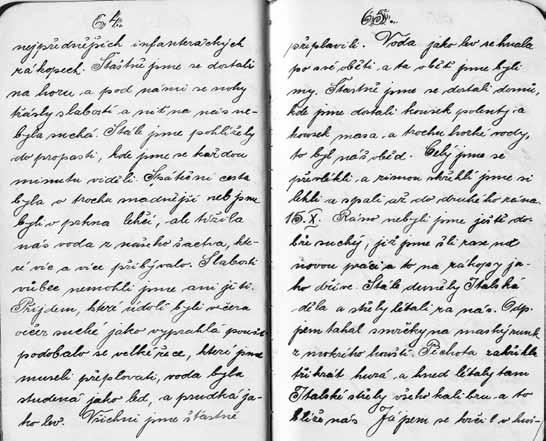 64.
nejpřednějších infanteráckých
zákopech. Šťastně jsme se dostali
na horu, a pod námi se nohy
třásly slabostí a nit na nás ne-
byla suchá. Stále jsme pohlíželi
do propasti, kde jsme se každou
minutu viděli. Spáteční cesta
byla o trochu snadnější neb jsme
byli o prkna lehčí, ale tížila
nás voda z našeho šactva, kte-
ré víc a více přibývalo. Slabostí
vůbec nemohli jsme ani jíti.
Příjdem, které údolí bylo včera
večer suché jako vyprahlá poušť
podobalo se velké řece, které jsme
museli přeplovati, voda byla
studená jako led, a prudká ja-
ko lev. Všichni jsme šťastně
65.
přeplavili. Voda jako lev se hnala
po své oběti, a ta obětí jsme byli
my. Šťastně jsme se dostali domů,
kde jsme dostali kousek polenty a
kousek masa, a trochu horké vody,
to byl náš oběd. Celý jsme se
převlékli a zimou skřehlí jsme si
lehli a spali až do druhého rána.
15.X. Ráno nebyli jsme ještě do-
bře suchý, již jsme šli zase na
novou práci a to na zákopy ja-
ko dříve. Stále duněly Italská
děla a střely lítali za nás. Odp.
jsem tahal smrčky na
z mokrého houští. Pěchota zakřikla
třikrát hurá, a hned lítaly tam
Italské střely všeho kalibru a to
blíže nás Já jsem se krčil v hou-